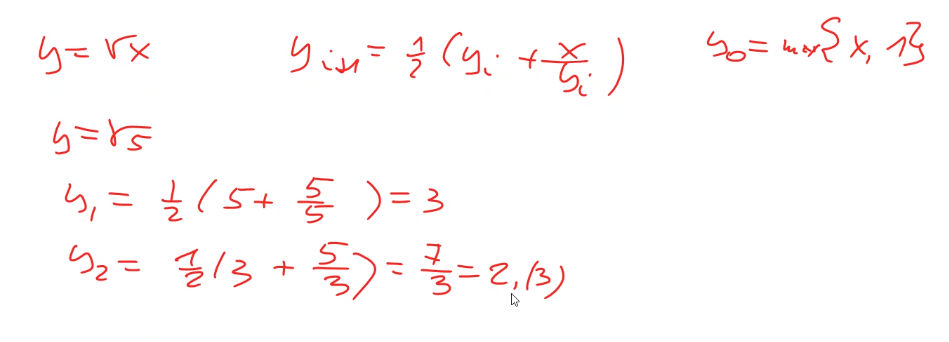 y = √x    y_{i+1} = 1/2 (y_i + x/y_i)    y_0 = max{x, 1}
y = √5
y_1 = 1/2 (5 + 5/5) = 3
y_2 = 1/2 (3 + 5/3) = 7/3 = 2,(3)